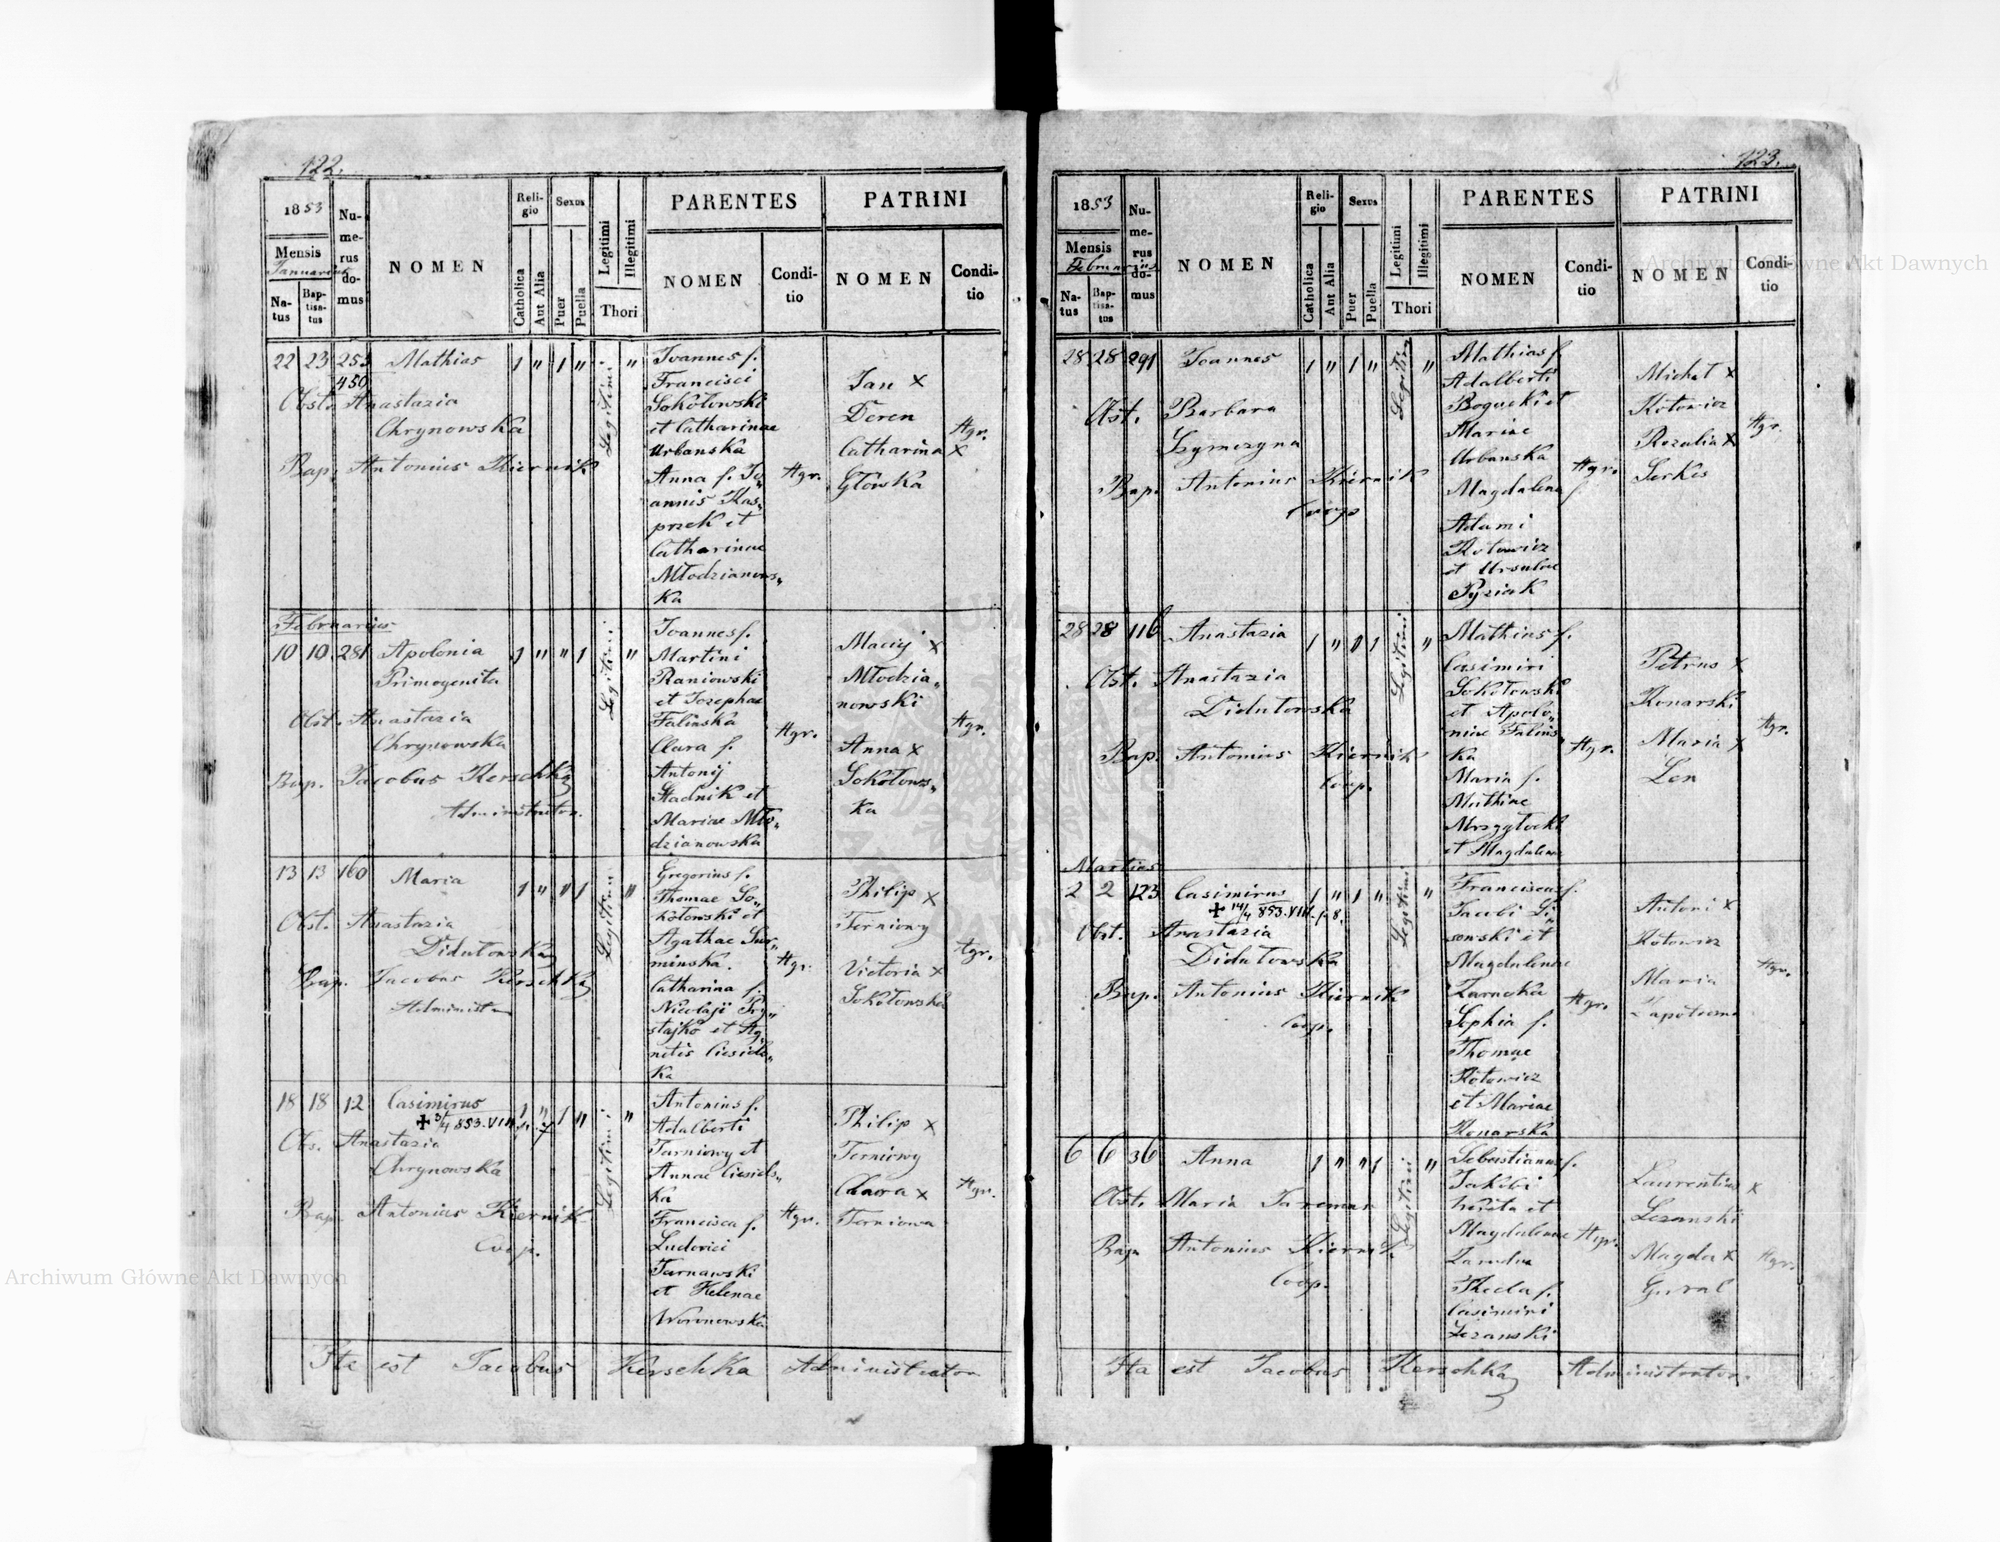 122.
1853
Mensis
Januarius
Natus
Baptisatus
Numerus domus
NOMEN
Religio
Catholica
Aut Alia
Sexus
Puer
Puella
Legitimi
Illegitimi
Thori
PARENTES
NOMEN
Conditio
PATRINI
NOMEN
Conditio
22 23 253 Mathias 1 " 1 " Legitimi "
450
Obst. Anastazia
Chrynowska
Bap. Antonius Kiernik
Joannes f.
Francisci
Sokołowski
et Catharinae
Urbanska
Anna f. Jo„
annis Kas„
przek et
Catharinae
Młodzianows„
ka
Agr.
Jan x
Deren
Catharina x
Głowska
Agr.
Februarius
10 10 281 Apolonia 1 " " 1 Legitimi "
Primogenita
Obst. Anastazia
Chrynowska
Bap. Jacobus Kerschka
Administrator.
Joannes f.
Martini
Raniowski
et Josephae
Falinska
Clara f.
Antonij
Stadnik et
Mariae Mło„
dzianowska
Agr.
Maciej x
Młodzia„
nowski
Anna x
Sokołows„
ka
Agr.
13 13 160 Maria 1 " " 1 Legitimi "
Obst. Anastazia
Didutowska
Bap. Jacobus Kerschka
Administr
Gregorius f.
Thomae So„
kołowski et
Agathae Sur„
minska.
Catharina f.
Nicolaji Try„
stajko et Ag„
netis Ciesiels„
ka
Agr.
Philip x
Terniowy
Victoria x
Sokołowska
Agr.
18 18 12 Casimirus 1 " 1 " Legitimi "
+ 3/4 853. VIII. p. 7
Obs. Anastazia
Chrynowska
Bap. Antonius Kiernik
Coop.
Antonius f.
Adalberti
Tarniowy et
Annae Ciesiels„
ka
Francisca f.
Ludovici
Tarnawski
et Helenae
Woronowska
Agr.
Philip x
Terniowy
Clara x
Terniowa
Agr.
Ita est Jacobus Kerschka Administrator
123.
1853
Mensis
Februarius
Natus
Baptisatus
Numerus domus
NOMEN
Religio
Catholica
Aut Alia
Sexus
Puer
Puella
Legitimi
Illegitimi
Thori
PARENTES
NOMEN
Conditio
PATRINI
NOMEN
Conditio
28 28 291 Joannes 1 " 1 " Legitimi "
Obst. Barbara
Szymczyna
Bap. Antonius Kiernik
Coop
Mathias f.
Adalberti
Bogucki et
Mariae
Urbanska
Magdalena f
Adami
Kotowicz
et Ursulae
Pyziak
Agr.
Michał x
Kotowicz
Rozalia x
Serkes
Agr.
28 28 116 Anastazia 1 " " 1 Legitimi "
Obst. Anastazia
Didutowska
Bap. Antonius Kiernik
Coop.
Mathias f.
Casimiri
Sokołowski
et Apolo„
niae Falins„
ka
Maria f.
Mathiae
Mrzygłocki
et Magdalenae
Agr.
Petrus x
Konarski
Maria x
Len
Agr.
Martius
2 2 123 Casimirus 1 " 1 " Legitimi "
+ 14/4 853. VIII. p. 8.
Obst. Anastazia
Didutowska
Bap. Antonius Kiernik
Coop.
Franciscus f.
Jacobi Li„
sowski et
Magdalenae
Zarucka
Sophia f.
Thomae
Kotowicz
et Mariae
Konarska
Agr.
Antoni x
Kotowicz
Maria
Agr.
6 6 36 Anna 1 " " 1 Legitimi "
Obst. Maria
Bap. Antonius Kiernik
Coop.
Sebastianus f.
Jakobi
et
Magdalenae
Thecla f.
Casimiri
Lezanski
Agr.
Laurentius x
Lezanski
Magda x
Gural
Agr.
Ita est Jacobus Kerschka Administrator.
Archiwum Główne Akt Dawnych
Archiwum Główne Akt Dawnych